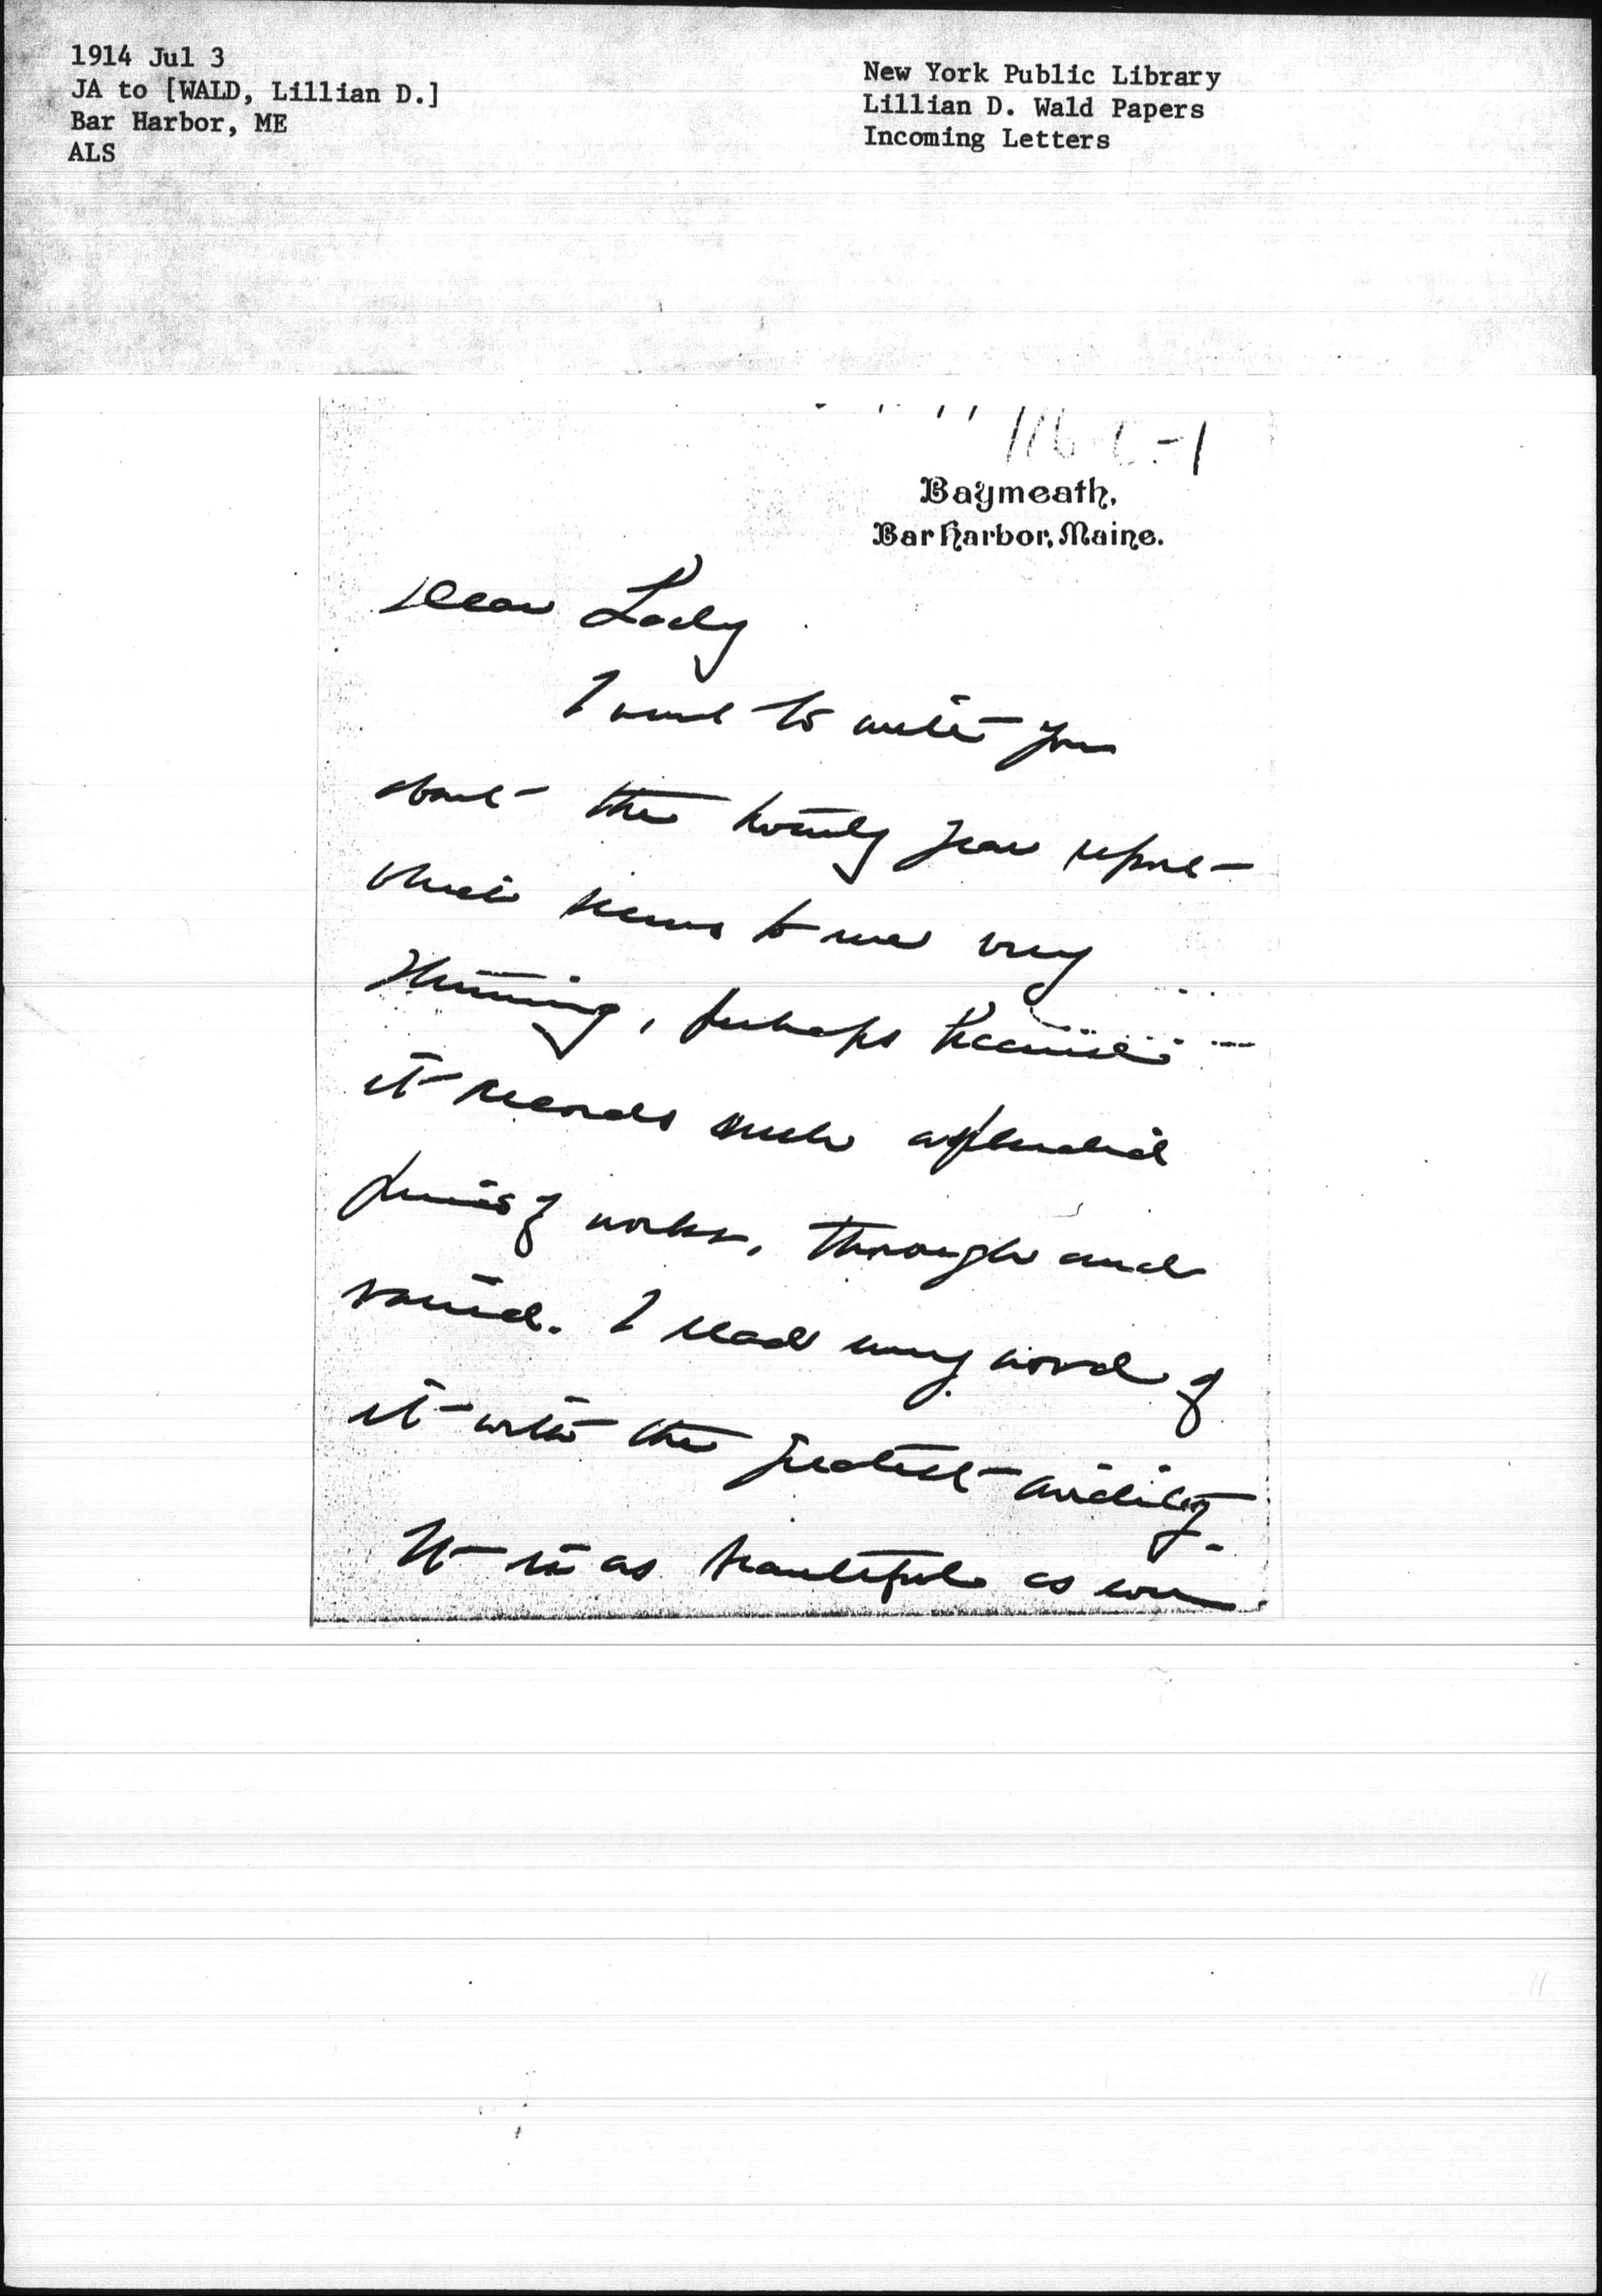 1914 Jul 3
JA to [WALD, Lillian D.]
Bar Harbor, ME
ALS
New York Public Library
Lillian D. Wald Papers
Incoming Letters
Baymeath,
Bar Harbor, Maine.
Dear Lady
I want to write you
about the twenty year report
which seems to me very
stunning, perhaps because
it records such splendid
of work, through and
varied. I read every word of
it with the greatest avidity.
It is as beautiful as ever